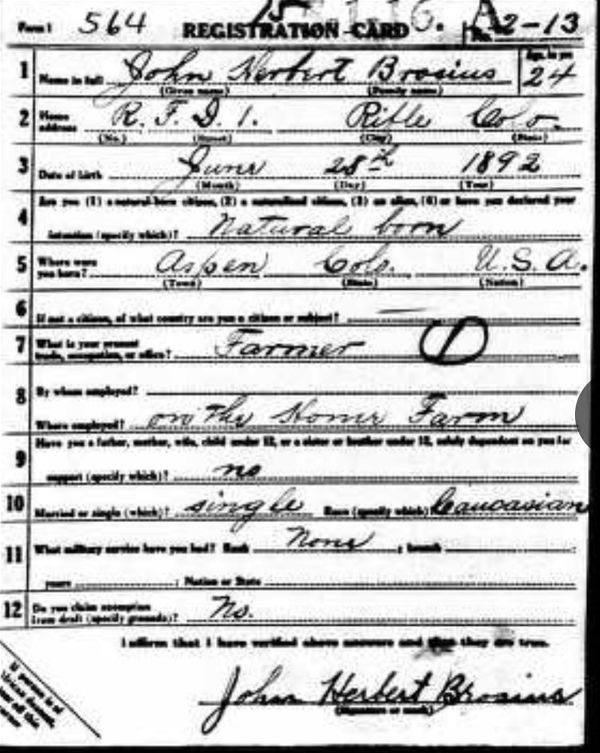 Form 1 564 REGISTRATION CARD No. A2-13
1 Name in full John Herbert Brosius Age, in yrs 24
(Given name) (Family name)
2 Home address R. F. D. 1. Rifle Colo.
(No.) (Street) (City) (State)
3 Date of birth June 28th 1892
(Month) (Day) (Year)
4 Are you (1) a natural-born citizen, (2) a naturalized citizen, (3) an alien, (4) or have you declared your
intention (specify which)? Natural born
5 Where were you born? Aspen Colo. U.S.A.
(Town) (State) (Nation)
6 If not a citizen, of what country are you a citizen or subject? —
7 What is your present trade, occupation, or office? Farmer 1
8 By whom employed?
Where employed? on the Home Farm
9 Have you a father, mother, wife, child under 12, or a sister or brother under 12, solely dependent on you for
support (specify which)? no
10 Married or single (which)? single Race (specify which)? Caucasian
11 What military service have you had? Rank None ; branch
years ; Nation or State
12 Do you claim exemption from draft (specify grounds)? No.
I affirm that I have verified above answers and that they are true.
John Herbert Brosius
(Signature or mark)
If person is of